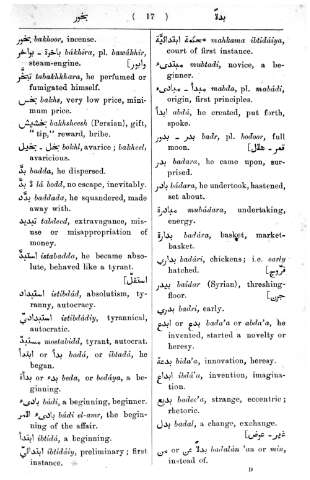 بخور
( 17 )
بدلاً
بخور bakhoor, incense.
باخرة - بواخر bâkhira, pl. bawâkhir,
steam-engine. [وابور
تبخّر tabakhkhara, he performed or
fumigated himself.
بخس bakhs, very low price, mini-
mum price.
بخشيش bakhsheesh (Persian), gift,
"tip," reward, bribe.
بخل - بخيل bokhl, avarice; bakheel,
avaricious.
بدّ badda, he dispersed.
لا بدّ lâ bodd, no escape, inevitably.
بدّد baddada, he squandered, made
away with.
تبديد tabdeed, extravagance, mis-
use or misappropriation of
money.
استبدّ istabadda, he became abso-
lute, behaved like a tyrant.
[استقلّ
استبداد istibdâd, absolutism, ty-
ranny, autocracy.
استبداديّ istibdâdiy, tyrannical,
autocratic.
مستبدّ mostabidd, tyrant, autocrat.
بدأ or ابتدأ badâ, or ibtadâ, he
began.
بدء or بداءة beda, or bedâya, a be-
ginning.
بادىء bâdi, a beginning, beginner.
بادىء الامر bâdi el-amr, the begin-
ning of the affair.
ابتداء ibtidâ, a beginning.
ابتدائيّ ibtidâiy, preliminary; first
instance.
محكمة ابتدائيّة mahkama ibtidâiya,
court of first instance.
مبتدىء mubtadi, novice, a be-
ginner.
مبدأ - مبادىء mabda, pl. mabâdi,
origin, first principles.
ابدأ abdâ, he created, put forth,
spoke.
بدر - بدور badr, pl. bodoor, full
moon. [قمر - هلال
بدر badara, he came upon, sur-
prised.
بادر bâdara, he undertook, hastened,
set about.
مبادرة mubâdara, undertaking,
energy.
بدارة badâra, basket, market-
basket.
بداري badâri, chickens; i.e. early
hatched. [فرّوج
بيدر baidar (Syrian), threshing-
floor. [جرن
بدري badri, early.
بدع or ابدع bada'a or abda'a, he
invented, started a novelty or
heresy.
بدعة bida'a, innovation, heresy.
ابداع ibdâ'a, invention, imagina-
tion.
بديع badee'a, strange, eccentric;
rhetoric.
بدل badal, a change, exchange.
[غير - عوض
بدلاً عن or من badalân 'an or min,
instead of.
D